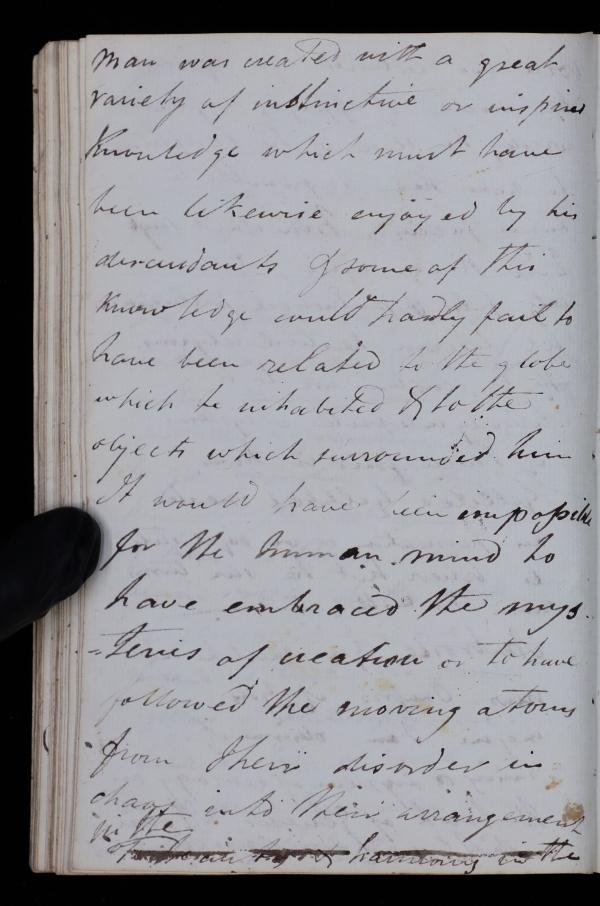 man was created with a great
variety of instinctive or inspired
knowledge which must have
been likewise enjoyed by his
descendants & some of this
knowledge could hardly fail to
have been related to the globe
which he inhabited & to the
objects which surrounded him
It would have been impossible
for the human mind to
have embraced the mys
-teries of creation or to have
followed the moving atoms
from their disorder in
chaos into their arrangement
in the
harmony in the